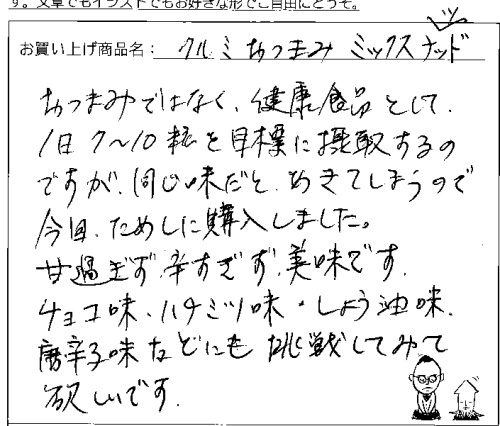 す。文章でもイラストでもお好きな形でご自由にどうぞ。
お買い上げ商品名： クルミおつまみ ミックスナッツ
おつまみではなく、健康食品として、
1日7〜10粒を目標に摂取するの
ですが、同じ味だと、あきてしまうので
今回、ためしに購入しました。
甘過ぎず、辛すぎず、美味です。
チョコ味・ハチミツ味・しょう油味、
唐辛子味などにも挑戦してみて
欲しいです。